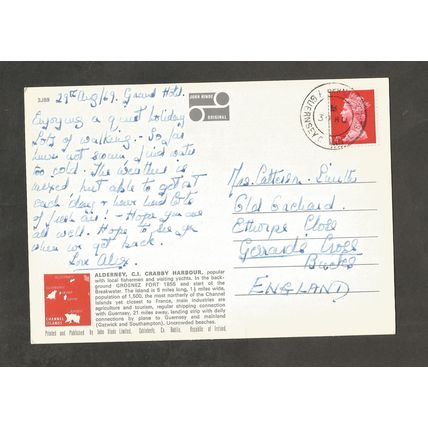 2JBB
29th Aug/69. Grand Hotel.
JOHN HINDE
ORIGINAL
Enjoying a quiet holiday
Lots of walking. So far
have not swum, find water
too cold. The weather is
mixed, but able to get out
each day & have had lots
of fresh air! - Hope you are
all well. Hope to see you
when we get back.
Love
GUERNSEY
Mrs.
Old Orchard
Ethorpe Close
Gerrards Cross
Bucks
ENGLAND
ALDERNEY, C.I. CRABBY HARBOUR, popular
with local fishermen and visiting yachts. In the back-
ground GROSNEZ FORT 1855 and start of the
Breakwater. The island is 5 miles long, 1½ miles wide,
population of 1,500, the most northerly of the Channel
Islands yet closest to France, main industries are
agriculture and tourism, regular shipping connection
with Guernsey, 21 miles away, landing strip with daily
connections by plane to Guernsey and mainland
(Gatwick and Southampton). Uncrowded beaches.
CHANNEL
ISLANDS
Printed and Published by John Hinde Limited, Cabinteely, Co. Dublin, Republic of Ireland.